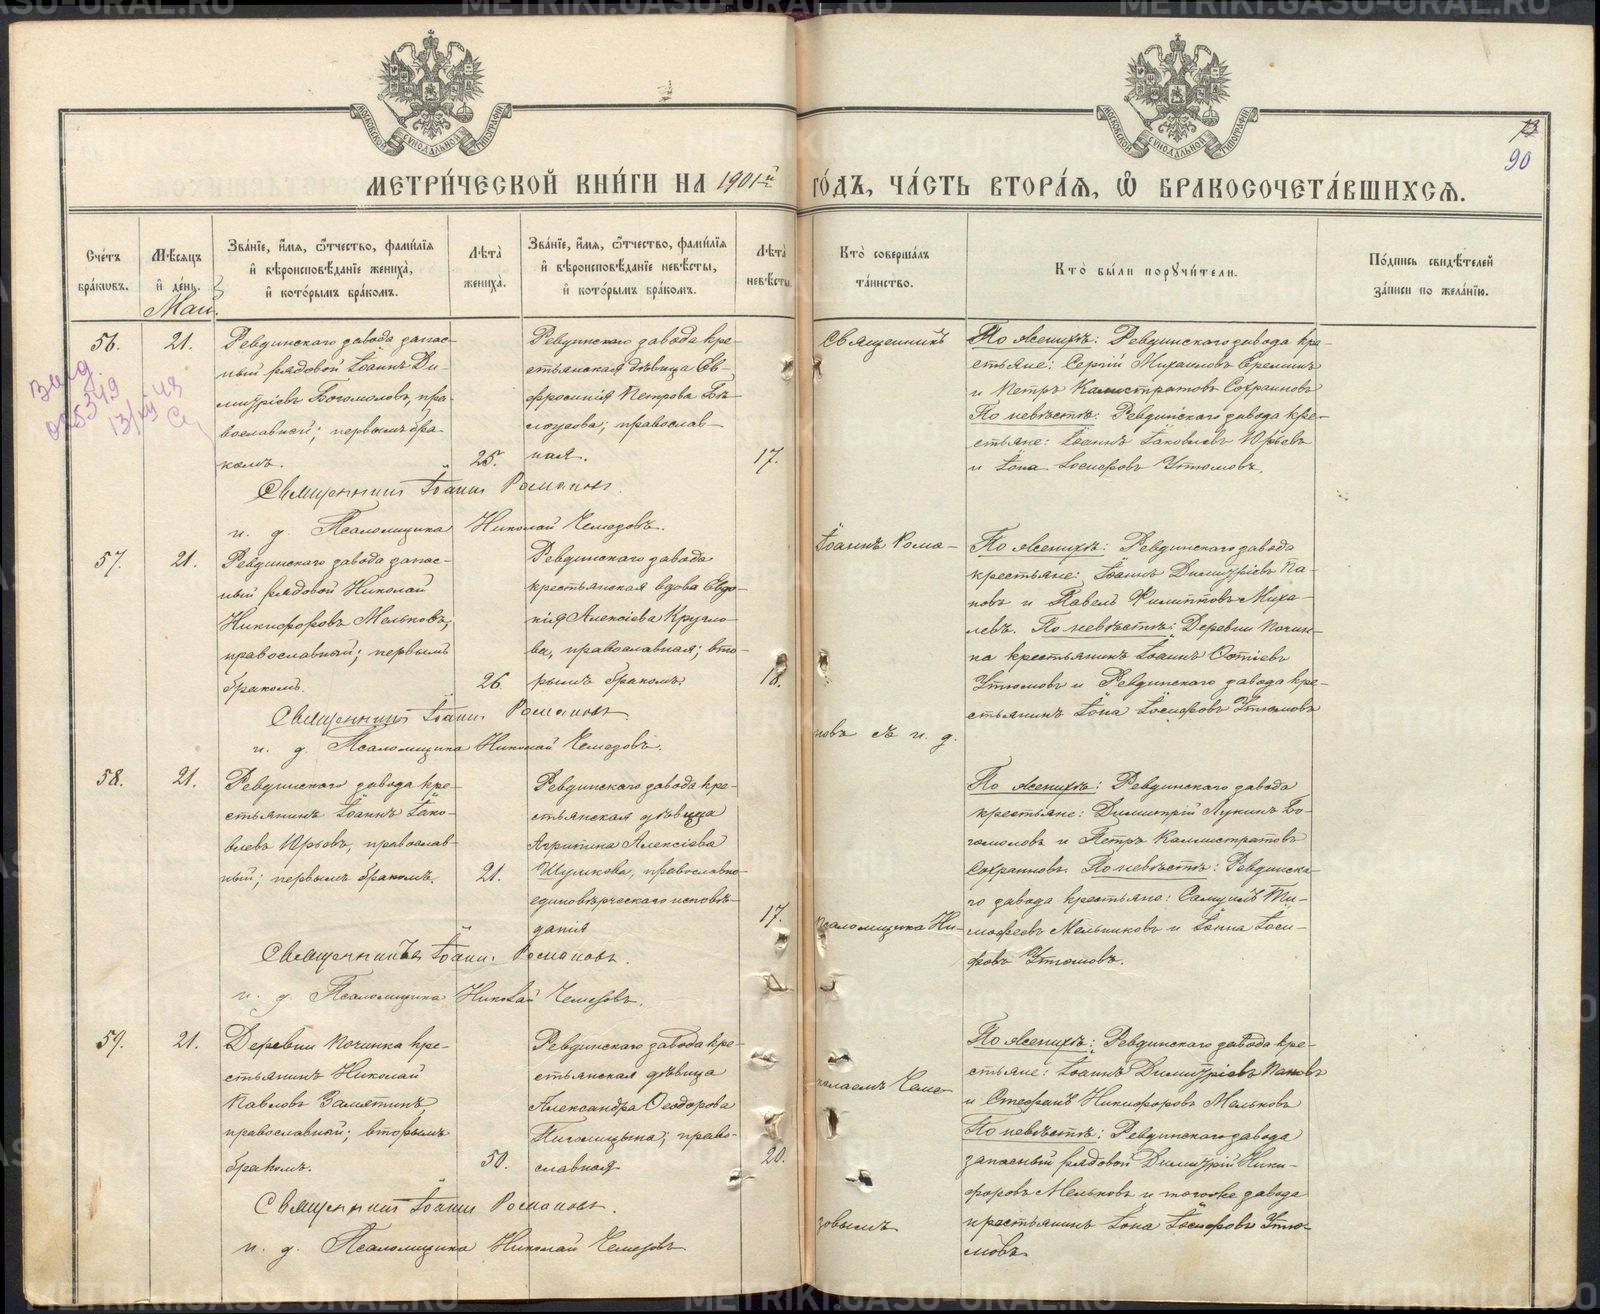 МЕТРИ́ЧЕСКОЙ КНИ́ГИ НА 1901-й ГО́ДЪ, ЧА́СТЬ ВТОРА́Ѧ, Ѡ҆ БРАКОСОЧЕТА́ВШИХСѦ.
90
Сче́тъ бра́кѡвъ.
Мѣ́сѧцъ и҆ де́нь.
Зва́нїе, и҆́мѧ, ѻ҆́тчество, фами́лїѧ и҆ вѣроисповѣ́данїе жениха̀, и҆ кото́рымъ бра́комъ.
Лѣта̀ жениха̀.
Зва́нїе, и҆́мѧ, ѻ҆́тчество, фами́лїѧ и҆ вѣроисповѣ́данїе невѣ́сты, и҆ кото́рымъ бра́комъ.
Лѣта̀ невѣ́сты.
Кто̀ соверша́лъ та́инство.
Кто̀ бы́ли порꙋчи́тели.
По́дпись свидѣ́телей за́писи по жела́нїю.
Май.
56.
21.
Ревдинскаго завода запас-
ный рядовой Іоаннъ Ди-
митріевъ Богомоловъ, пра-
вославный; первымъ бра-
комъ.
25.
Ревдинскаго завода кре-
стьянская дѣвица Ев-
фросинія Петрова Бѣ-
лоусова; православ-
ная.
17.
Священникъ
По женихѣ: Ревдинскаго завода кре-
стьяне: Сергій Михаиловъ Ереминъ
и Петръ Каллистратовъ Сохрановъ
По невѣстѣ: Ревдинскаго завода кре-
стьяне: Іоаннъ Іаковлевъ Юрьевъ
и Іона Іосифовъ Утюмовъ.
Священникъ Іоаннъ Романовъ.
и. д. Псаломщика Николай Чемезовъ.
57.
21.
Ревдинскаго завода запас-
ный рядовой Николай
Никифоровъ Мельковъ,
православный; первымъ
бракомъ.
26.
Ревдинскаго завода
крестьянская вдова Евдо-
кія Алексіева Кругло-
ва, православная; вто-
рымъ бракомъ.
18.
Іоаннъ Рома-
По женихѣ: Ревдинскаго завода
крестьяне: Іоаннъ Димитріевъ Па-
новъ и Павелъ Филипповъ Миха-
левъ. По невѣстѣ: Деревни Почин-
ка крестьянинъ Іоаннъ Фотіевъ
Утюмовъ и Ревдинскаго завода кре-
стьянинъ Іона Іосифовъ Утюмовъ
Священникъ Іоаннъ Романовъ.
и. д. Псаломщика Николай Чемезовъ.
новъ съ и. д.
58.
21.
Ревдинскаго завода кре-
стьянинъ Іоаннъ Іако-
влевъ Юрьевъ, православ-
ный; первымъ бракомъ.
21.
Ревдинскаго завода кре-
стьянская дѣвица
Агрипина Алексіева
Шумкова, православно-
единовѣрческаго исповѣ-
данія
17.
псаломщика Ни-
По женихѣ: Ревдинскаго завода
крестьяне: Димитрій Лукинъ Бо-
гомоловъ и Петръ Каллистратовъ
Сохрановъ. По невѣстѣ: Ревдинска-
го завода крестьяне: Самуилъ Ти-
мофеевъ Мельниковъ и Іонна Іоси-
фовъ Утюмовъ.
Священникъ Іоаннъ Романовъ.
и. д. Псаломщика Николай Чемезовъ.
59.
21.
Деревни Починка кре-
стьянинъ Николай
Павловъ Замятинъ,
православный; вторымъ
бракомъ.
50.
Ревдинскаго завода кре-
стьянская дѣвица
Александра Ѳеодорова
Пичмицына; право-
славная.
20.
колаемъ Чеме-
По женихѣ: Ревдинскаго завода кре-
стьяне: Іоаннъ Димитріевъ Пановъ
и Стефанъ Никифоровъ Мельковъ
По невѣстѣ: Ревдинскаго завода
запасный рядовой Димитрій Ники-
форовъ Мельковъ и того же завода
крестьянинъ Іона Іосифовъ Утю-
мовъ.
зовымъ
Священникъ Іоаннъ Романовъ.
и. д. Псаломщика Николай Чемезовъ
METRIKI.GASO-URAL.RU